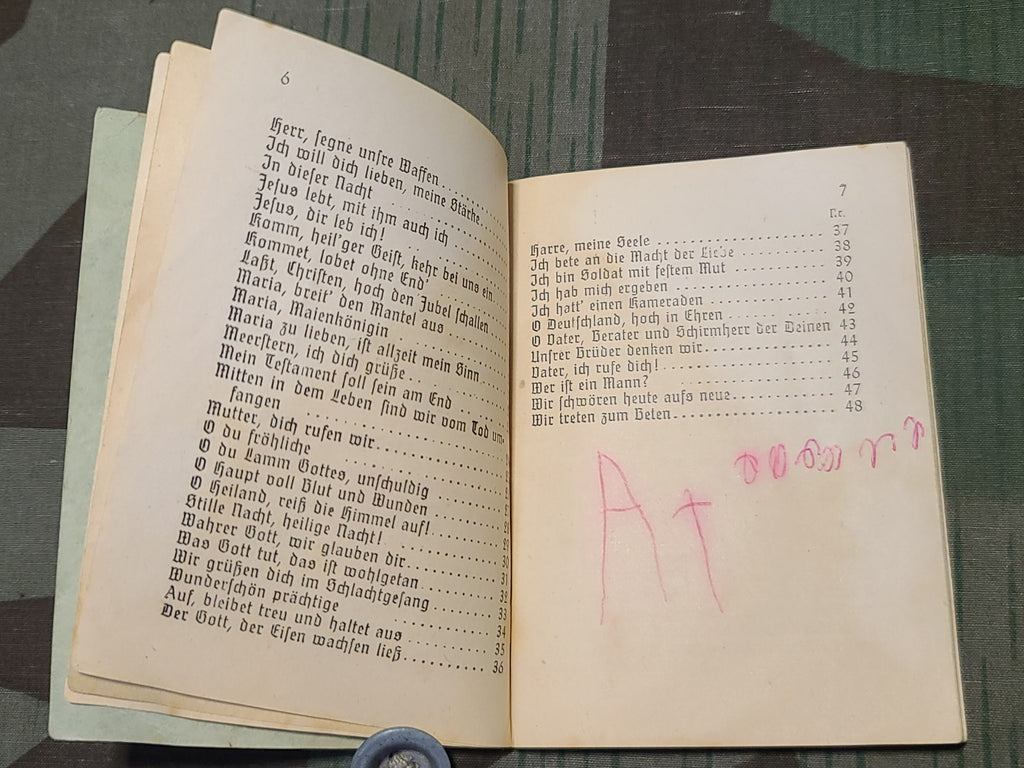 6
Herr, segne unsre Waffen . . . . . .
Ich will dich lieben, meine Stärke . .
In dieser Nacht . . . . . . . . . .
Jesus lebt, mit ihm auch ich . . . . .
Jesus, dir leb ich! . . . . . . . . .
Komm, heil'ger Geist, kehr bei uns ein .
Kommet, lobet ohne End' . . . . . .
Laßt, Christen, hoch den Jubel schallen
Maria, breit' den Mantel aus . . . . .
Maria, Maienkönigin . . . . . . . .
Maria zu lieben, ist allzeit mein Sinn . .
Meerstern, ich dich grüße . . . . . .
Mein Testament soll sein am End . . . .
Mitten in dem Leben sind wir vom Tod um-
fangen . . . . . . . . . . . . .
Mutter, dich rufen wir . . . . . . . .
O du fröhliche . . . . . . . . . . .
O du Lamm Gottes, unschuldig . . . . .
O Haupt voll Blut und Wunden . . . . .
O Heiland, reiß die Himmel auf! . . . .
Stille Nacht, heilige Nacht! . . . . . .
Wahrer Gott, wir glauben dir . . . . . 30
Was Gott tut, das ist wohlgetan . . . . 31
Wir grüßen dich im Schlachtgesang . . . 32
Wunderschön prächtige . . . . . . . . 33
Auf, bleibet treu und haltet aus . . . . 34
35
Der Gott, der Eisen wachsen ließ . . . . 36
7
Nr.
Harre, meine Seele . . . . . . . . . . 37
Ich bete an die Macht der Liebe . . . . 38
Ich bin Soldat mit festem Mut . . . . . 39
Ich hab mich ergeben . . . . . . . . . 40
Ich hatt' einen Kameraden . . . . . . . 41
O Deutschland, hoch in Ehren . . . . . 42
O Vater, Berater und Schirmherr der Deinen 43
Unsrer Brüder denken wir . . . . . . . 44
Vater, ich rufe dich! . . . . . . . . . 45
Wer ist ein Mann? . . . . . . . . . . 46
Wir schwören heute aufs neue . . . . . 47
Wir treten zum Beten . . . . . . . . . 48
A t